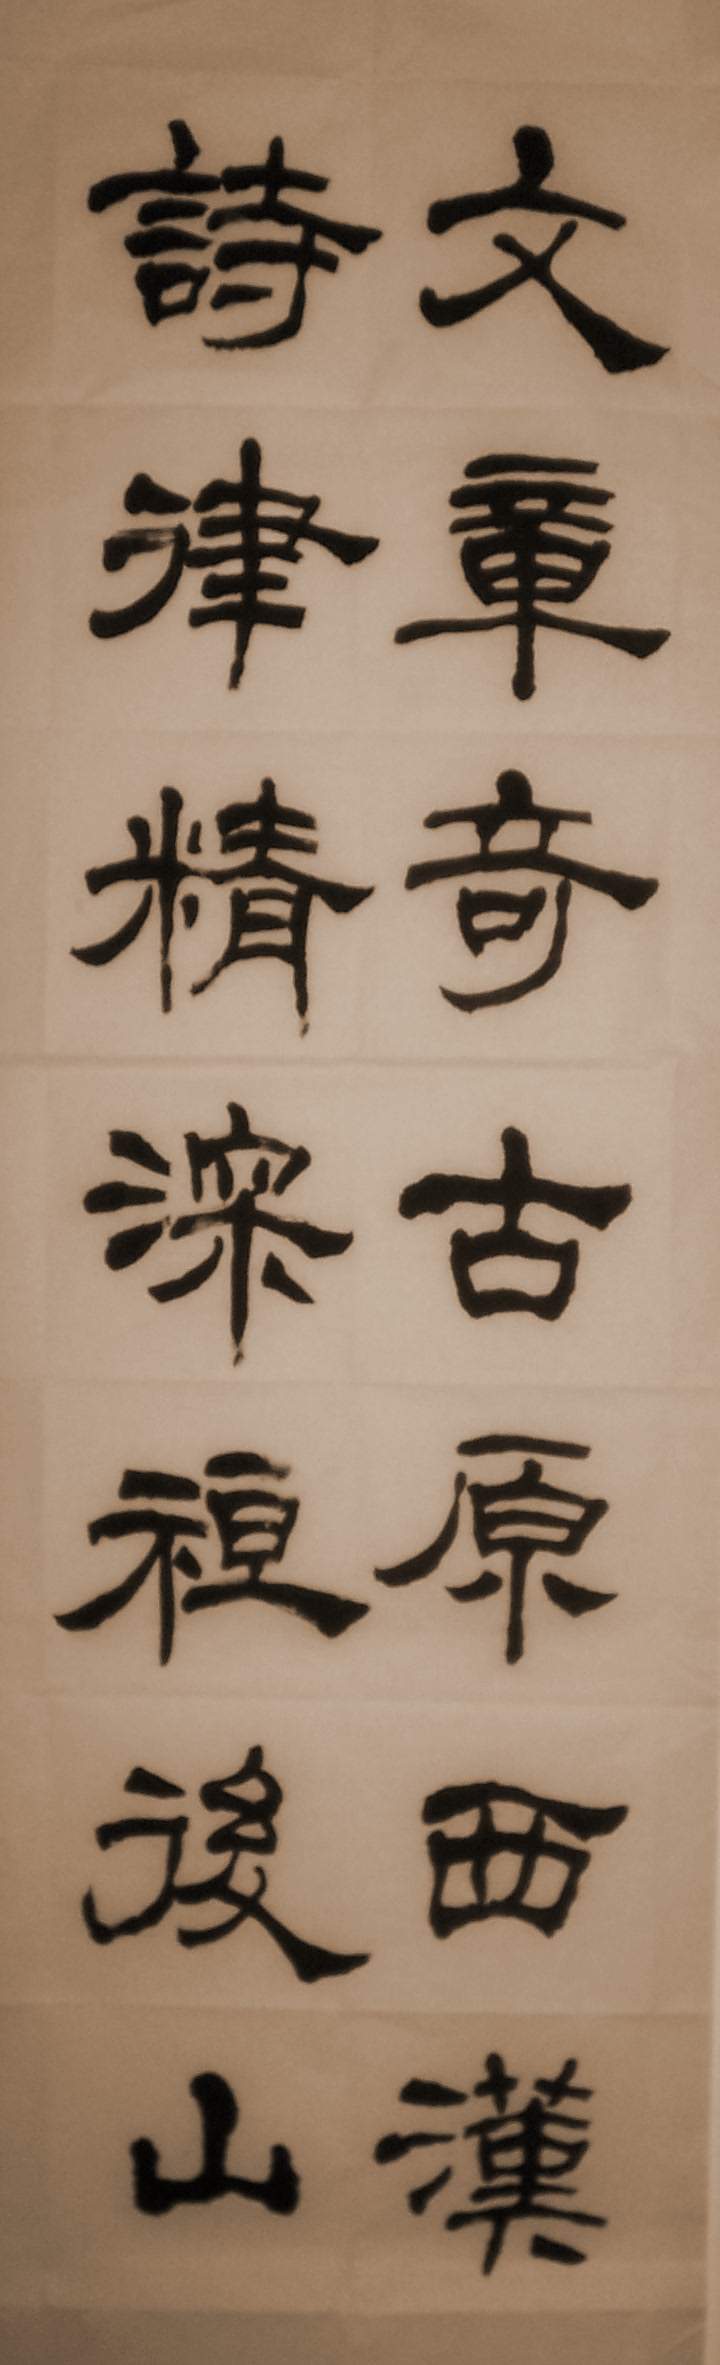 文章奇古原西漢
詩律精深祖後山